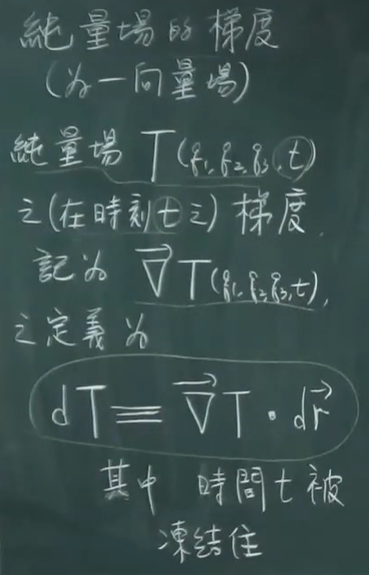 純量場的梯度
(為一向量場)
純量場 T(q₁,q₂,q₃,t)
之(在時刻t之)梯度,
記為 ∇⃗T(q₁,q₂,q₃,t),
之定義為
dT≡∇⃗T·dr⃗
其中 時間t被
凍結住